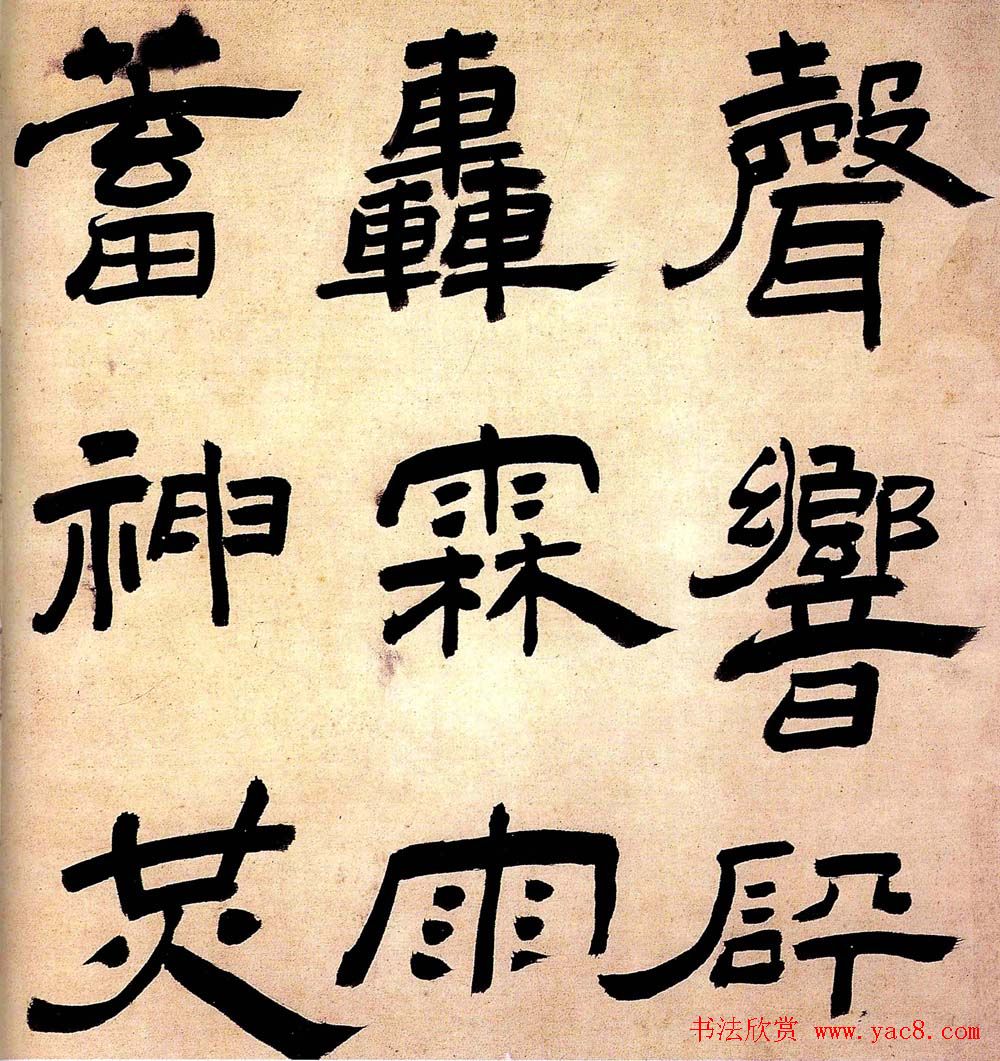 聲響
轟霖雨
蓄神炗
书法欣赏 www.yac8.com